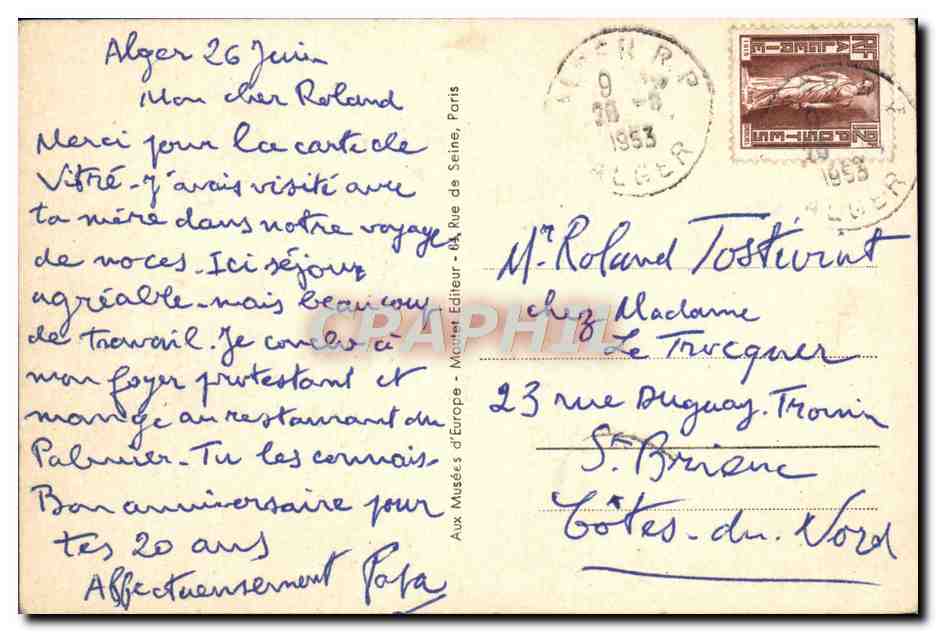 Alger 26 Juin
Mon cher Roland
Merci pour la carte de
Vitré. J'avais visité avec
ta mère dans notre voyage
de noces. Ici séjour
agréable. mais beaucoup
de travail. Je couche à
mon foyer protestant et
mange au restaurant du
Palmier. Tu les connais.
Bon anniversaire pour
tes 20 ans
Affectueusement Papa
Aux Musées d'Europe - Moutet Editeur - Rue de Seine, Paris
ALGER R.P
9
26 -6
1953
ALGER
RF ALGERIE
12F POSTES
1953
ALGER
CRAPHIL
Mr. Roland Tostivint
chez Madame
Le Trocquer
23 rue Duguay-Trouin
St Brieuc
Côtes-du-Nord